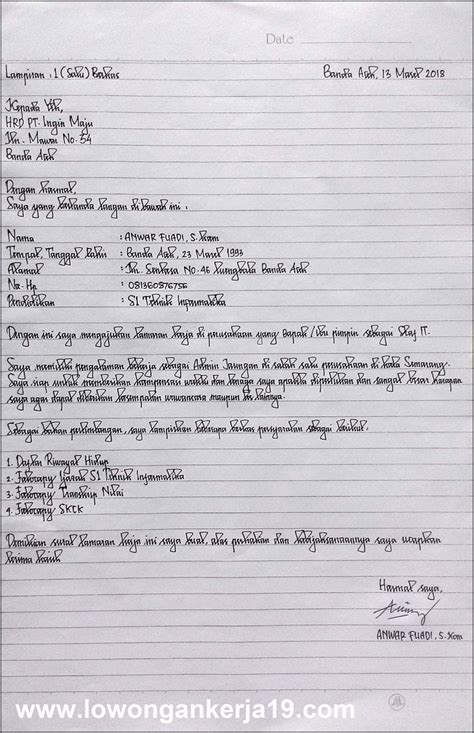 Date
Lampiran : 1 (Satu) Berkas
Banda Aceh, 13 Maret 2018
Kepada Yth,
HRD PT. Ingin Maju
Jln. Mawar No. 54
Banda Aceh
Dengan hormat,
Saya yang bertanda tangan di bawah ini :
Nama : ANWAR FUADI, S.Kom
Tempat, Tanggal Lahir : Banda Aceh, 23 Maret 1993
Alamat : Jln. Sentosa No. 46 Banda Aceh
No. Hp : 081360876756
Pendidikan : S1 Teknik Informatika
Dengan ini saya mengajukan lamaran kerja di perusahaan yang Bapak / Ibu pimpin sebagai Staf IT.
Saya memiliki pengalaman bekerja sebagai Admin Jaringan di salah satu perusahaan di kota Semarang.
Saya siap untuk memberikan kompensasi waktu dan tenaga saya apabila diperlukan dan sangat besar harapan
saya agar dapat diberikan kesempatan wawancara maupun tes lainnya.
Sebagai bahan pertimbangan, saya lampirkan beberapa berkas persyaratan sebagai berikut.
1. Daftar Riwayat Hidup
2. Fotocopy Ijazah S1 Teknik Informatika
3. Fotocopy Transkip Nilai
4. Fotocopy SKCK
Demikian surat lamaran kerja ini saya buat, atas perhatian dan kebijaksanaannya saya ucapkan
terima kasih
Hormat saya,
ANWAR FUADI, S.Kom
www.lowongankerja19.com